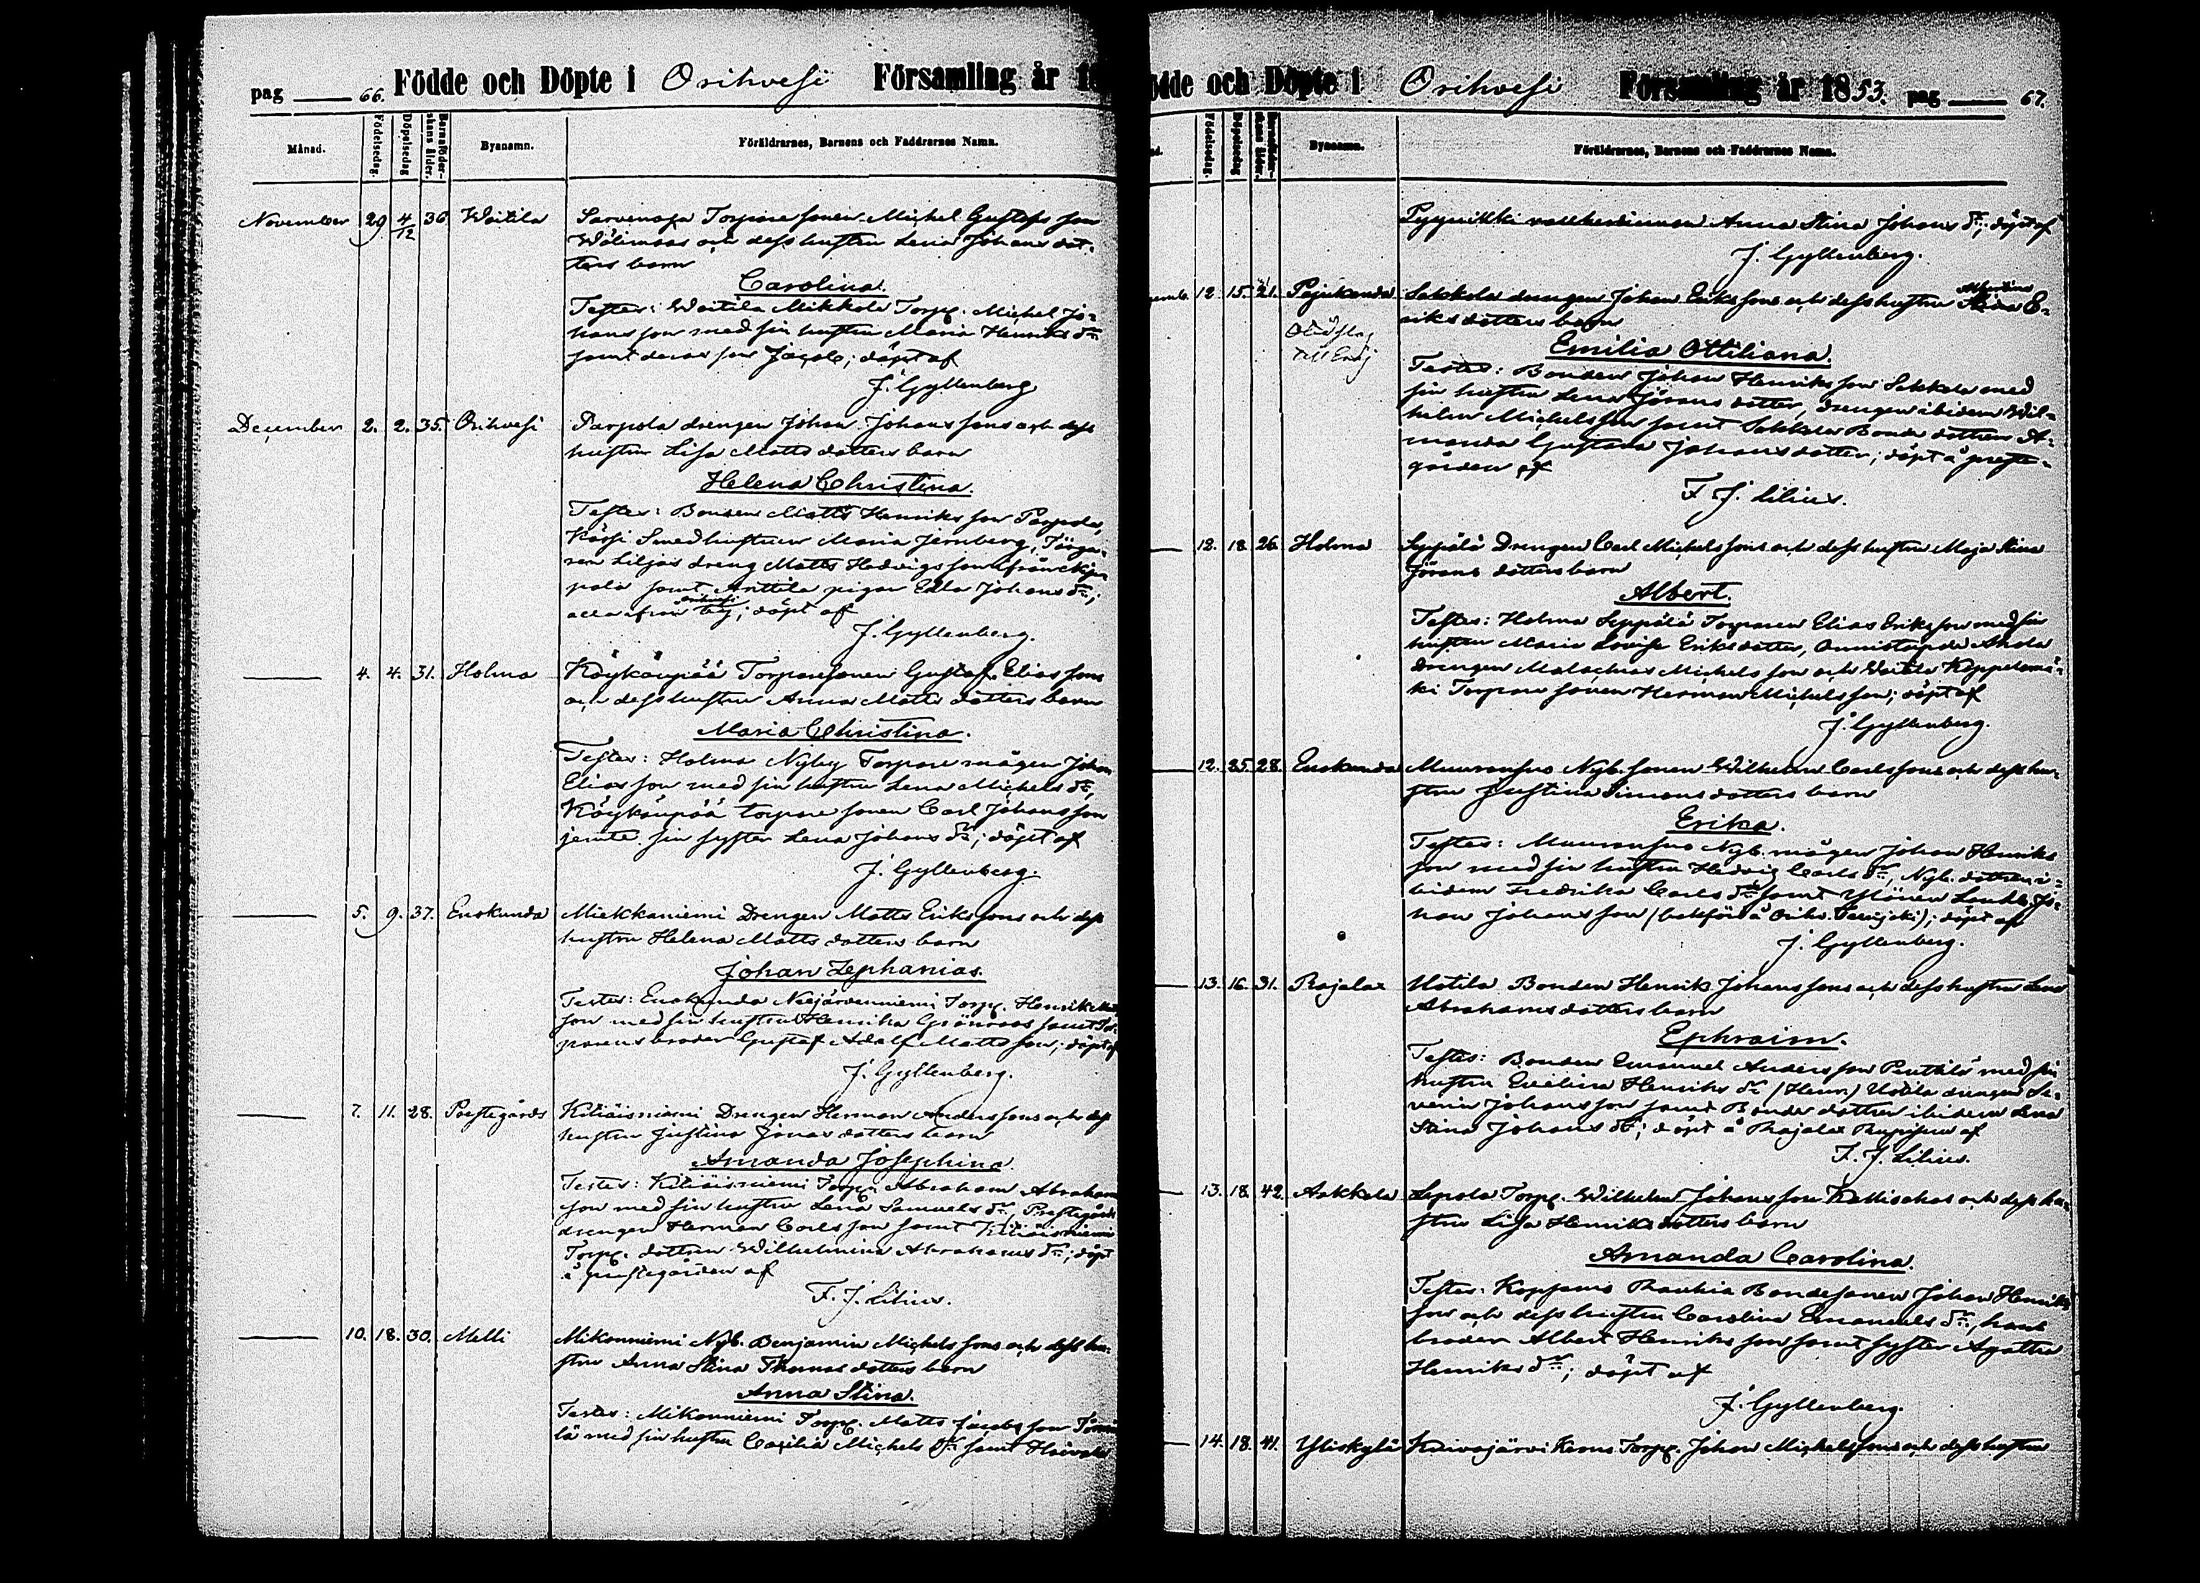 pag 66. Födde och Döpte i Orihvesi Församling år 1
Månad. Födelsedag. Döpelsedag Barnaföder-skans ålder. Byanamn. Föräldrarnes, Barnens och Faddrarnes Namn.
November 29 4/12 36 Woitila Torpare sonen Michel Gustafs son
och dess hustru Lena Johans dot-
ters barn
Carolina.
Testes: Woitila Mikkola Torp. Michel Jo-
hans son med sin hustru Maria Henriks dr
samt deras son Jacob; döpt af
J. Gyllenberg
December 2. 2. 35. Orihvesi Parpola drengen Johan Johans sons och dess
hustru Lisa Matts dotters barn
Helena Christina.
Testes: Bonden Matts Henriks son Parpola,
Smedhustrun Maria Jernberg,
dreng Matts Hedvigs son
samt Anttila pigan Johans dr;
alla från Orihvesi by; döpt af
J. Gyllenberg.
4. 4. 31. Holma Köykänpää Torparesonen Gustaf Elias sons
och dess hustru Anna Matts dotters barn
Maria Christina.
Testes: Holma Nyby Torpare mågen Johan
Elias son med sin hustru Lena Michels dr,
Köykänpää torpare sonen Carl Johans son
jemte sin syster Lena Johans dr; döpt af
J. Gyllenberg.
5. 9. 37. Enokunda Miekkaniemi Drengen Matts Eriks sons och dess
hustru Helena Matts dotters barn
Johan Zephanias.
Testes: Enokunda Torp. Henrik
son med sin hustru Henrika Grönroos samt Tor-
parens broder Gustaf Adolf Matts son; döpt af
J. Gyllenberg.
7. 11. 28. Prestegårds Kiliäisniemi Drengen Herman Anders sons och dess
hustru Justina Jonas dotters barn
Amanda Josephina.
Testes: Kiliäisniemi Torp. Abraham Abrahams
son med sin hustru Lena Samuels dr, Prestegårds
drengen Herman Carls son samt Kiliäisniemi
Torp. dottren Wilhelmina Abrahams dr; döpt
å prestegården af
F. J. Lilius.
10. 18. 30. Melli Mikonniemi Nyb. Benjamin Michels sons och dess hu-
stru Anna Stina Thomas dotters barn
Anna Stina.
Testes: Mikonniemi Torp. Matts Jacobs son
med sin hustru Cecilia Michels dr samt
ödde och Döpte i Orihvesi Församling år 1853. pag 67.
Födelsedag. Döpelsedag Barnaföder-skans ålder. Byanamn. Föräldrarnes, Barnens och Faddrarnes Namn.
Anna Stina Johans dr; döpt af
J. Gyllenberg.
12 15. 21. Pajukanda Sakkola drengen Johan Eriks sons och dess hustru Albertina E-
riks dotters barn
Emilia Ottiliana.
Testes: Bonden Johan Henriks son Sakkola med
sin hustru Lena Jörans dotter, drengen ibidem Wil-
helm Michels son samt Sakkola Bonde dottren A-
manda Gustava Johans dotter; döpt å preste-
gården af
F. J. Lilius.
12. 18. 26. Holma Seppälä Drengen Carl Michels sons och dess hustru Maja Stina
Jörans dotters barn
Albert.
Testes: Holma Seppälä Torparen Elias Eriks son med sin
hustru Maria Lovisa Eriks dotter, Ahola
drengen Malachias Michels son och Woitila
ki Torpare sonen Herman Michels son; döpt af
J. Gyllenberg.
12. 25. 28. Enokunda Nyb. sonen Wilhelm Carls sons och dess hu-
stru Justina Simons dotters barn
Erika.
Testes: Nyb. mågen Johan Henriks
son med sin hustru Hedvig Carls dr, Nyb. dottren i-
bidem Fredrika Carls dr samt Jo-
han Johans son; döpt af
J. Gyllenberg.
13. 16. 31. Rajalax Uotila Bonden Henrik Johans sons och dess hustru Lena
Abrahams dotters barn
Ephraim.
Testes: Bonden Emanuel Anders son Penttilä med sin
hustru Evelina Henriks dr Uotila drengen Se-
verin Johans son samt Bonde dottren ibidem Lena
Stina Johans dr; döpt å Rajalax af
F. J. Lilius.
13. 18. 42. Aakkola Sepola Torp. Wilhelm Johans son och dess hu-
stru Lisa Henriks dotters barn
Amanda Carolina.
Testes: Koppana Rauhia Bondesonen Johan Henriks
son och dess hustru Carolina Emanuels dr, hans
broder Albert Henriks son samt syster Agatha
Henriks dr; döpt af
J. Gyllenberg.
14. 18. 41. Yliskylä Kaivojärvi Krono Torp. Johan Michels sons och dess hustru